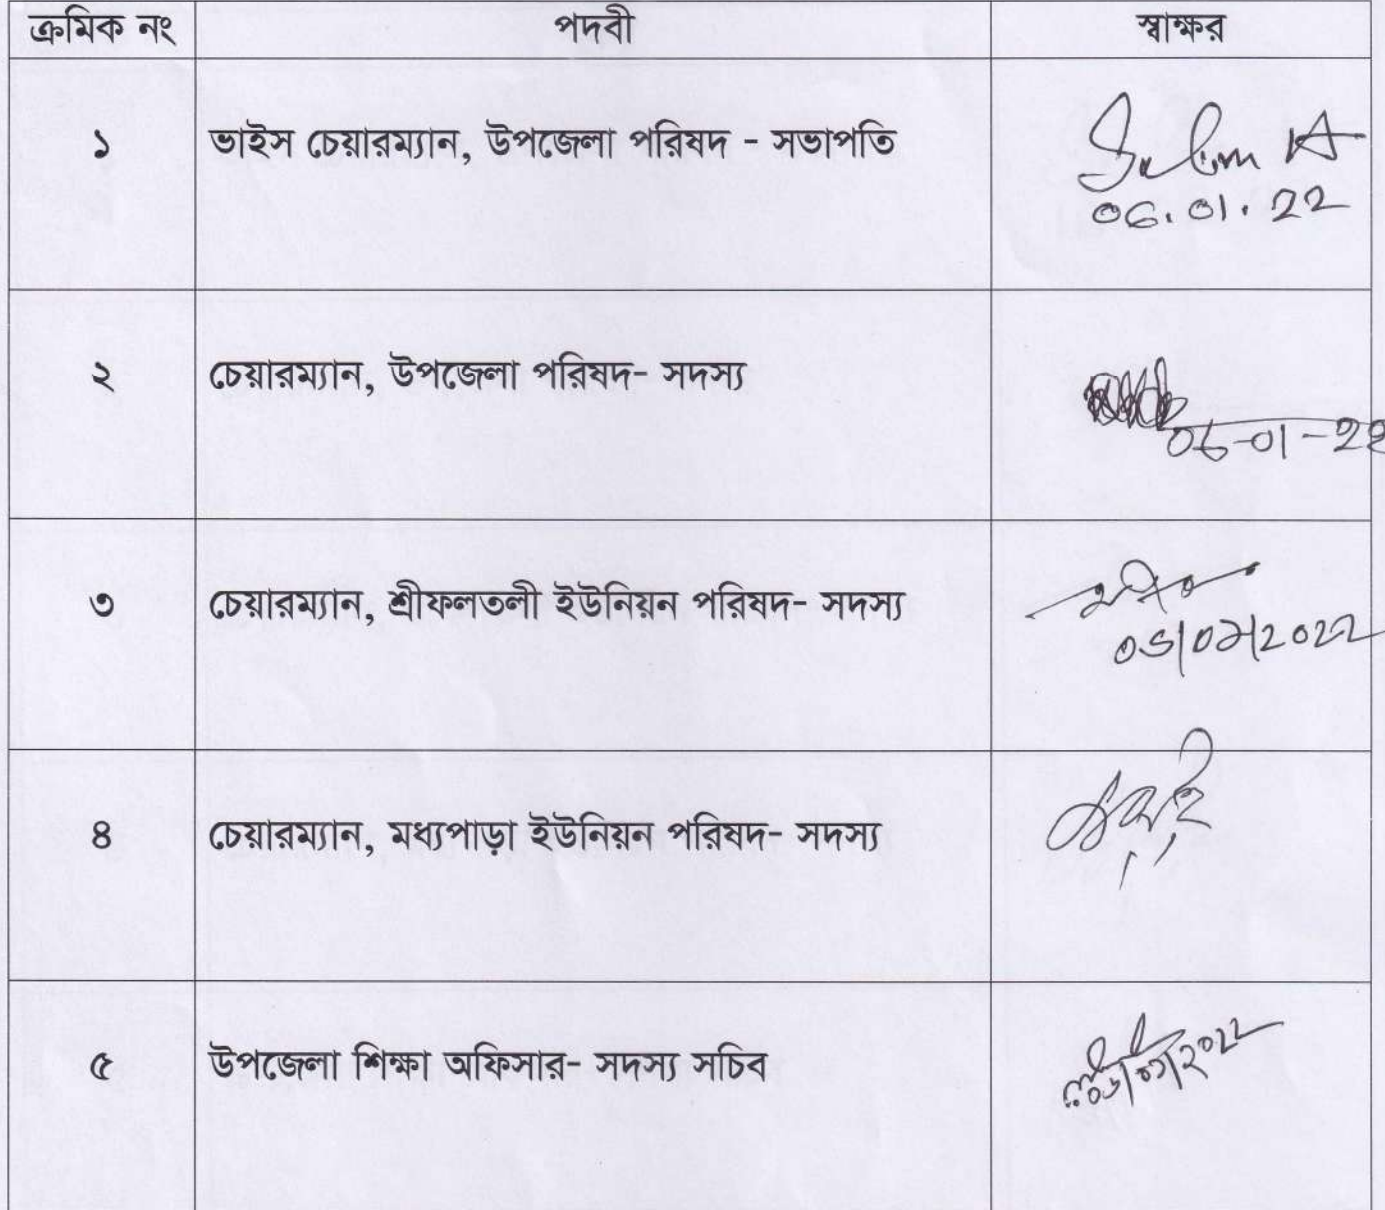 ক্রমিক নং পদবী স্বাক্ষর
১ ভাইস চেয়ারম্যান, উপজেলা পরিষদ - সভাপতি
06.01.22
২ চেয়ারম্যান, উপজেলা পরিষদ- সদস্য
06-01-22
৩ চেয়ারম্যান, শ্রীফলতলী ইউনিয়ন পরিষদ- সদস্য
০৬/০১/২০২২
৪ চেয়ারম্যান, মধ্যপাড়া ইউনিয়ন পরিষদ- সদস্য
৫ উপজেলা শিক্ষা অফিসার- সদস্য সচিব
০৬/০১/২০২২